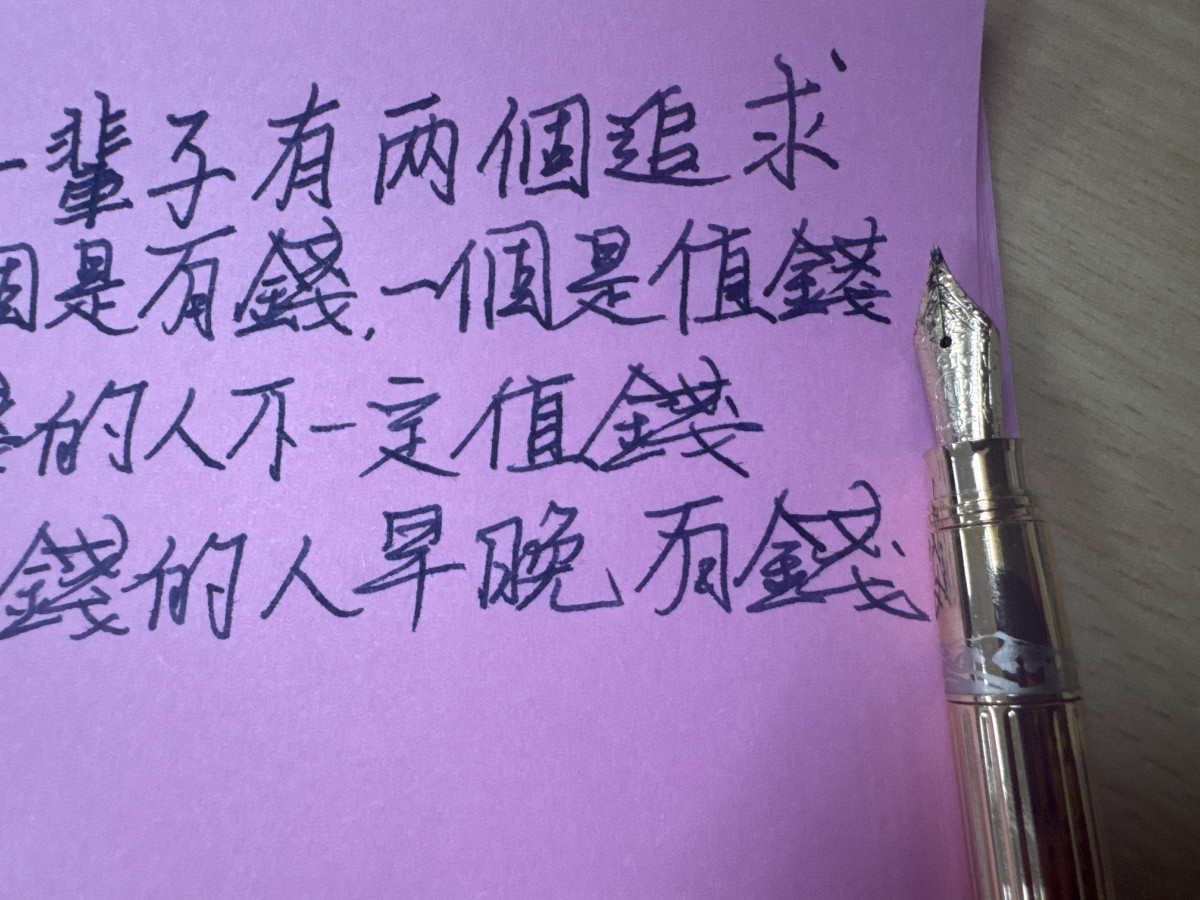 一輩子有两個追求
個是有錢,一個是值錢
錢的人不一定值錢
錢的人早晚有錢